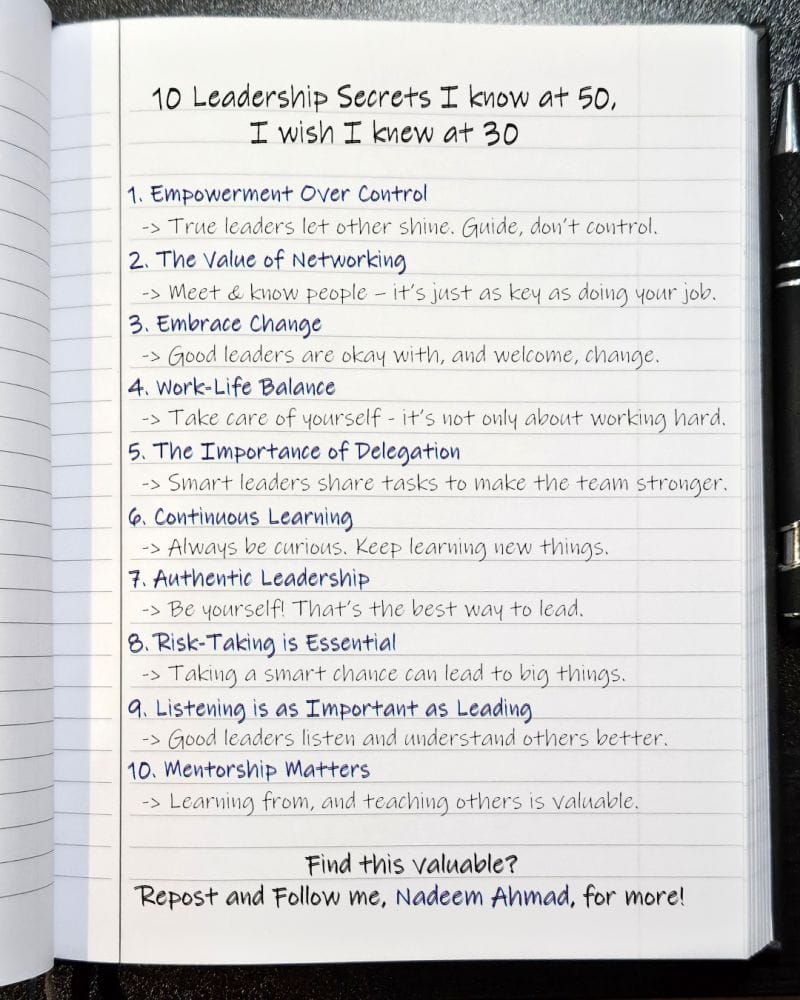 10 Leadership Secrets I know at 50,
I wish I knew at 30
1. Empowerment Over Control
-> True leaders let other shine. Guide, don't control.
2. The Value of Networking
-> Meet & know people – it's just as key as doing your job.
3. Embrace Change
-> Good leaders are okay with, and welcome, change.
4. Work-Life Balance
-> Take care of yourself - it's not only about working hard.
5. The Importance of Delegation
-> Smart leaders share tasks to make the team stronger.
6. Continuous Learning
-> Always be curious. Keep learning new things.
7. Authentic Leadership
-> Be yourself! That's the best way to lead.
8. Risk-Taking is Essential
-> Taking a smart chance can lead to big things.
9. Listening is as Important as Leading
-> Good leaders listen and understand others better.
10. Mentorship Matters
-> Learning from, and teaching others is valuable.
Find this valuable?
Repost and Follow me, Nadeem Ahmad, for more!